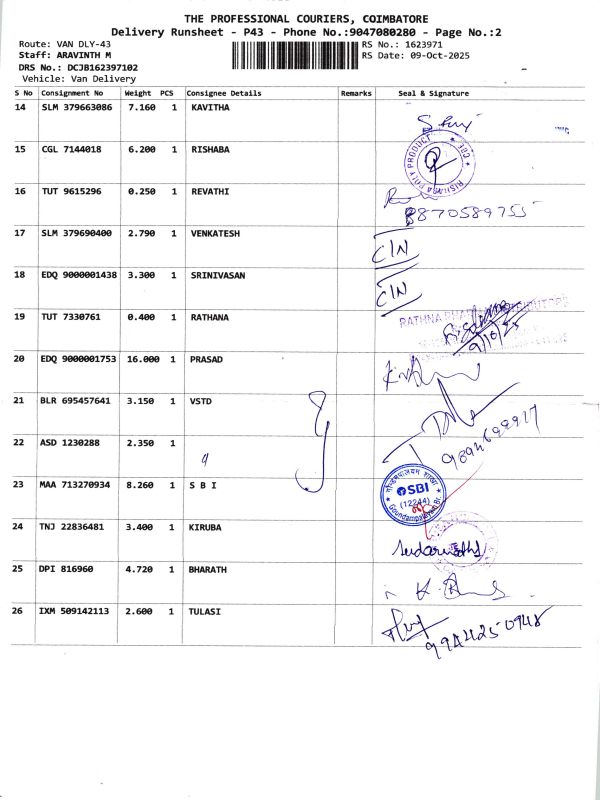 THE PROFESSIONAL COURIERS, COIMBATORE
Delivery Runsheet - P43 - Phone No.:9047080280 - Page No.:2
Route: VAN DLY-43 RS No.: 1623971
Staff: ARAVINTH M RS Date: 09-Oct-2025
DRS No.: DCJB162397102
Vehicle: Van Delivery
S No Consignment No Weight PCS Consignee Details Remarks Seal & Signature
14 SLM 379663086 7.160 1 KAVITHA
15 CGL 7144018 6.200 1 RISHABA
16 TUT 9615296 0.250 1 REVATHI
8870589755
17 SLM 379690400 2.790 1 VENKATESH C/N
18 EDQ 9000001438 3.300 1 SRINIVASAN C/N
19 TUT 7330761 0.400 1 RATHANA
9/10/25
20 EDQ 9000001753 16.000 1 PRASAD
21 BLR 695457641 3.150 1 VSTD
22 ASD 1230288 2.350 1
23 MAA 713270934 8.260 1 S B I
SBI
(12244)
24 TNJ 22836481 3.400 1 KIRUBA
25 DPI 816960 4.720 1 BHARATH
26 IXM 509142113 2.600 1 TULASI